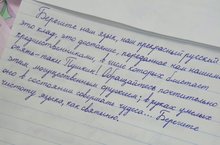 Берегите наш язык, наш прекрасный русский
это клад, это достояние, переданное нам нашими
предшественниками, в челе которых блистает
опять-таки Пушкин! Обращайтесь почтительно с
этим могущественным орудием; в руках умелых
оно в состоянии совершать чудеса... Берегите
чистоту языка, как святыню.